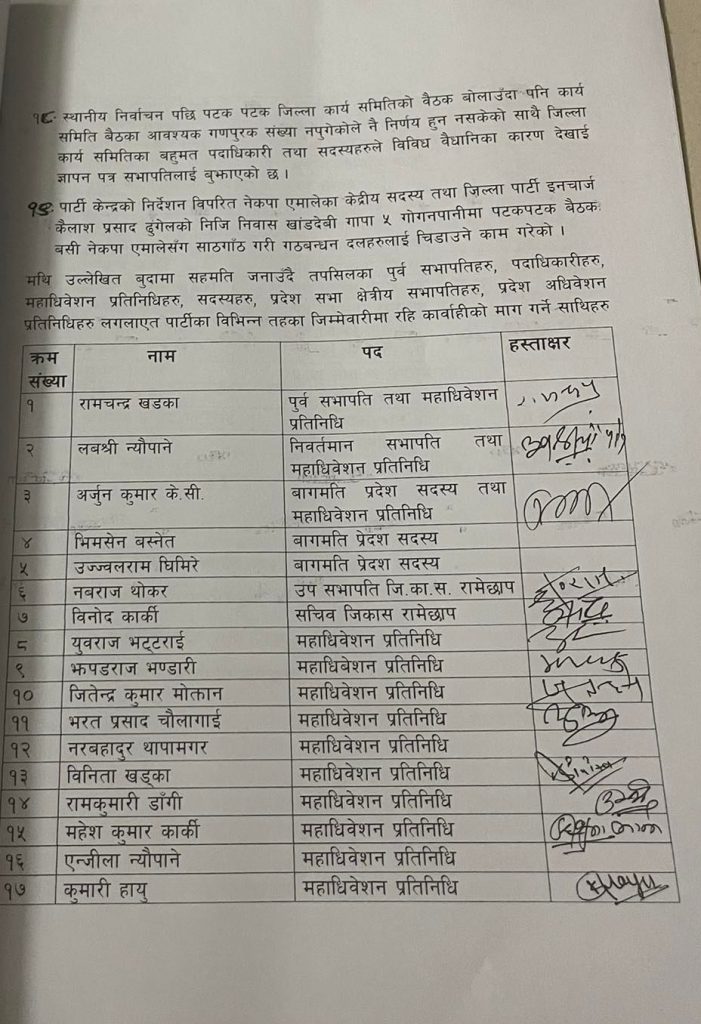 १८. स्थानीय निर्वाचन पछि पटक पटक जिल्ला कार्य समितिको वैठक बोलाउँदा पनि कार्य
समिति बैठका आवश्यक गणपुरक संख्या नपुगेकोले नै निर्णय हुन नसकेको साथै जिल्ला
कार्य समितिका बहुमत पदाधिकारी तथा सदस्यहरुले विविध वैधानिका कारण देखाई
ज्ञापन पत्र सभापतिलाई बुझाएको छ ।
१९. पार्टी केन्द्रको निर्देशन विपरित नेकपा एमालेका केद्रीय सदस्य तथा जिल्ला पार्टी इनचार्ज
कैलाश प्रसाद ढुंगेलको निजि निवास खांडदेबी गापा ५ गोगनपानीमा पटकपटक बैठक
बसी नेकपा एमालेसँग साठगाँठ गरी गठबन्धन दलहरुलाई चिडाउने काम गरेको ।
मथि उल्लेखित बुदामा सहमति जनाउँदै तपसिलका पुर्व सभापतिहरु, पदाधिकारीहरु,
महाधिवेशन प्रतिनिधिहरु, सदस्यहरु, प्रदेश सभा क्षेत्रीय सभापतिहरु, प्रदेश अधिवेशन
प्रतिनिधिहरु लगलाएत पार्टीका विभिन्न तहका जिम्मेवारीमा रहि कार्वाहीको माग गर्ने साथिहरु
क्रम संख्या नाम पद हस्ताक्षर
१ रामचन्द्र खडका पुर्व सभापति तथा महाधिवेशन
प्रतिनिधि
२ लबश्री न्यौपाने निवर्तमान सभापति तथा
महाधिवेशन प्रतिनिधि
३ अर्जुन कुमार के.सी. बागमति प्रदेश सदस्य तथा
महाधिवेशन प्रतिनिधि
४ भिमसेन बस्नेत बागमति प्रदेश सदस्य
५ उज्ज्वलराम घिमिरे बागमति प्रदेश सदस्य
६ नबराज थोकर उप सभापति जि.का.स. रामेछाप
७ विनोद कार्की सचिव जिकास रामेछाप
८ युवराज भट्टराई महाधिवेशन प्रतिनिधि
९ झपडराज भण्डारी महाधिबेशन प्रतिनिधि
१० जितेन्द्र कुमार मोक्तान महाधिवेशन प्रतिनिधि
११ भरत प्रसाद चौलागाई महाधिवेशन प्रतिनिधि
१२ नरबहादुर थापामगर महाधिवेशन प्रतिनिधि
१३ विनिता खड्का महाधिवेशन प्रतिनिधि
१४ रामकुमारी डाँगी महाधिवेशन प्रतिनिधि
१५ महेश कुमार कार्की महाधिवेशन प्रतिनिधि
१६ एन्जीला न्यौपाने महाधिवेशन प्रतिनिधि
१७ कुमारी हायु महाधिवेशन प्रतिनिधि